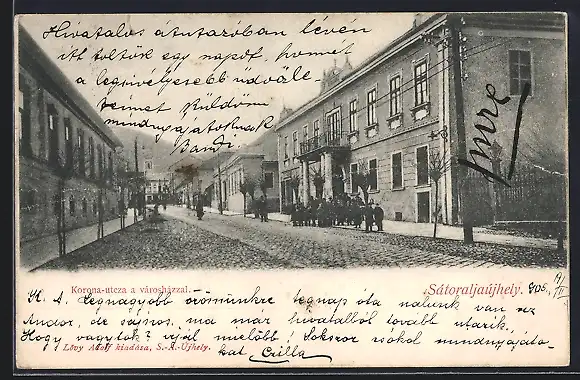 Hivatalos átutazóban lévén
itt töltök egy napot, honnét
a legszívélyesebb üdvöle-
teimet küldöm
mindnyájatoknak
Bandi
Imre
Korona-utcza a városházzal.
Sátoraljaújhely. 905.
Legnagyobb örömünkre tegnap óta nálunk van ez
Andor, de sajnos, ma már hivatalból tovább utazik.
Hogy vagytok? írjál mielőbb! Sokszor csókol mindnyájato-
kat Csilla
Lövy Adolf kiadása, S.-A.-Ujhely.